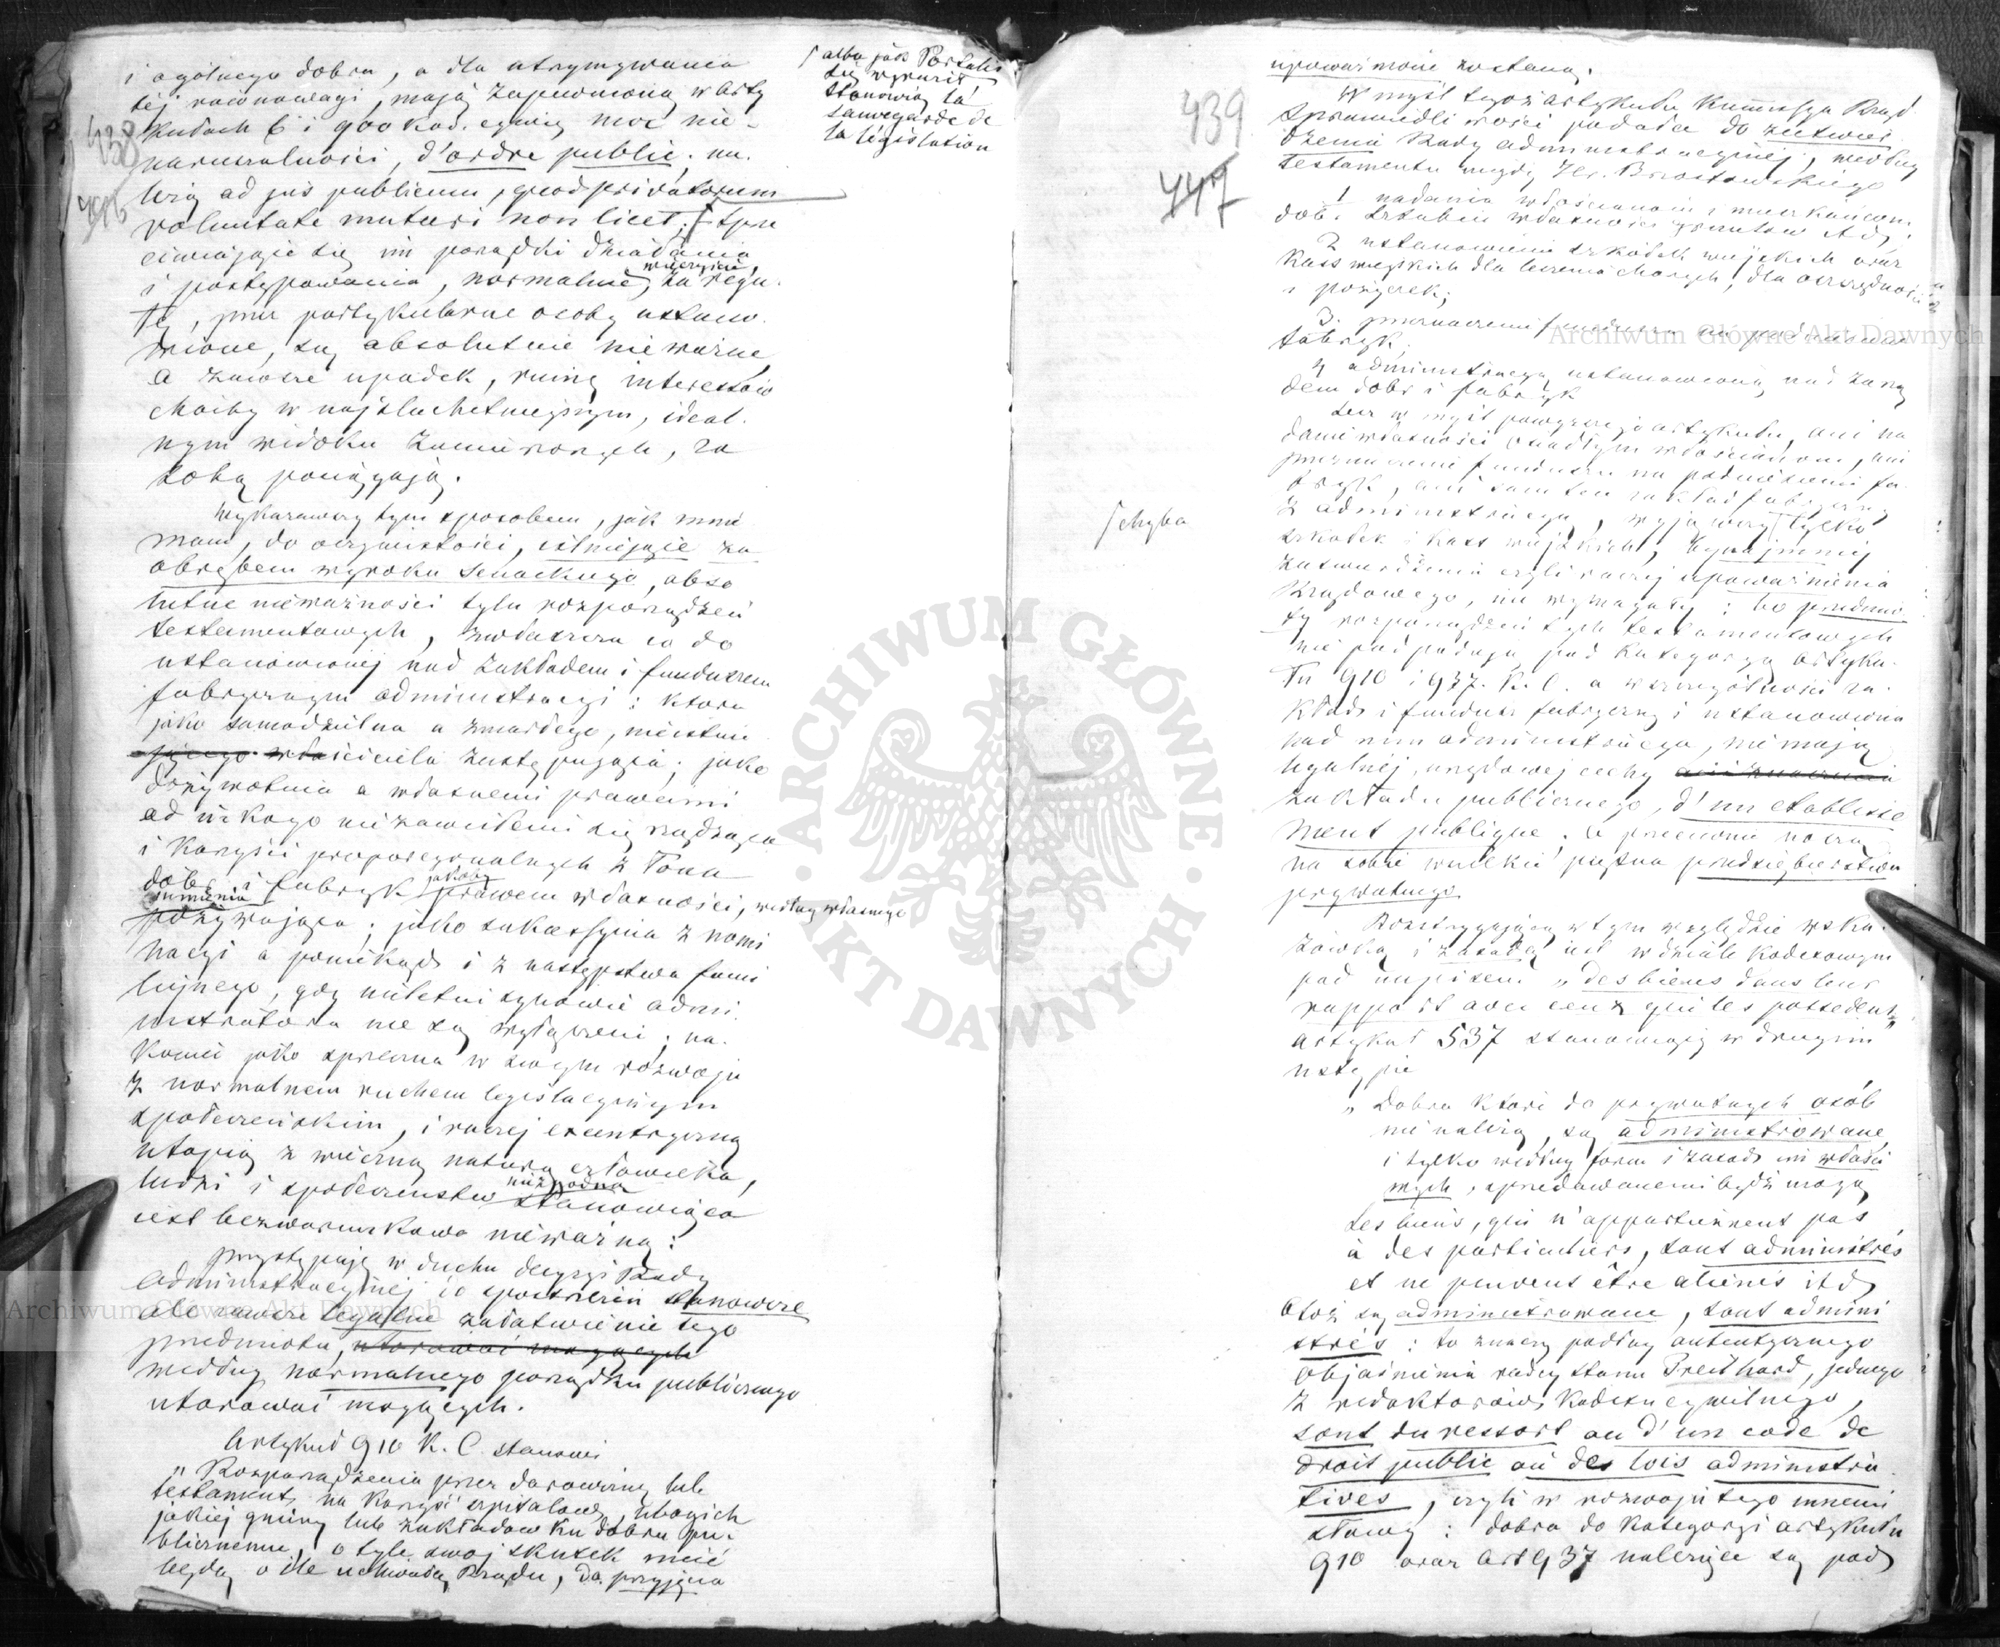 438
i ogólnego dobra, a dla utrzymywania
téj równowagi, mają zapewnioną w Arty
kułach 6 i 900 Kod. cywil. moc nie-
naruszalności, d'ordre public. na.
leżą ad jus publicum, quod privatorum
voluntate mutari non licet; sprze
ciwiające się im porządki działania
i postępowania, normalnie, wieczyście, za regu.
łę, przez partykularne osoby ustano.
wione, są absolutnie nieważne
a zawsze upadek, ruinę interessów
choćby w najszlachetniejszym, ideal.
nym widoku zamierzonych, za
sobą pociągają.
albo jak Portalis
się wyraził
stanowią la
sauvegarde de
la législation
Wykazawszy tym sposobem, jak mnie
mam, do oczywistości, istniejące za
obrębem wyroku Senackiego, abso
lutne nieważności tylu rozporządzeń
testamentowych, zwłaszcza co do
ustanowionej nad zakładem i funduszem
fabrycznym administracyi: która
jako samodzielna a zmarłego, nieistnie
jącego właściciela zastępująca; jako
dożywotnia a własnemi prawami
od nikogo niezawisłemi się rządząca
i korzyści proporcyonalnych z łona
dóbr i fabryk jakoby prawem własności, według własnego
sumienia pożywająca; jako sukcessyjna z nomi
nacyi a poniekąd i z następstwa fami
lijnego, gdy nieletni synowie admi
nistratora nie są wyłączeni; na.
koniec jako sprzeczna w swoim rozwoju
z normalnem ruchem legislacyjnym
społeczeńskim, i raczej excentryczną
utopią z wieczną naturą człowieka,
ludzi i społeczeństw niezgodną stanowiąca
jest bezwarunkowo nieważną:
przystępuję w duchu decyzyi Rady
administracyjnej do spostrzeżeń stanowcze
ale zawsze legalne załatwienie tego
przedmiotu, utorować mogących
według normalnego porządku publicznego
utorować mogących.
Artykuł 910 K. C. stanowi
„Rozporządzenia przez darowizny lub
testament, na korzyść szpitalów, ubogich
jakiej gminy lub zakładów ku dobru pu-
blicznemu, o tyle swój skutek mieć
będą, o ile uchwałą Rządu, do przyjęcia
439
447
upoważnione zostaną.
W myśl tegoż artykułu Kommissya Rząd.
Sprawiedliwości podała do zatwier
dzenia Rady administracyjnej, według
testamentu niegdy Hr. Brzostowskiego
1 nadania włościanom i mieszkańcom
dóbr Sztabin własności gruntów itd.
2 ustanowienia szkółek wiejskich oraz
Kass wiejskich dla leczenia chorych, dla oszczędności
i pożyczek;
3. przeznaczenie funduszu na podniesienie
fabryk,
4 administracyą ustanowioną nad zarzą
dem dóbr i fabryk
Lecz w myśl powyższego artykułu, ani na
danie własności osiadłym włościanom, ani
przeznaczenie funduszu na podniesienie fa.
bryk, ani sam ten zakład fabryczny
z administracyą, wyjąwszy tylko
szkółek i kass wiejskich, bynajmniej
chyba
zatwierdzenia czyli raczej upoważnienia
Rządowego, nie wymagały; bo przedmio
ty rozporządzeń tych testamentowych
nie podpadają pod kategoryą Artyku.
łu 910 i 937. K. C. a w szczególności za.
kład i fundusz fabryczny i ustanowiona
nad nim administracya, nie mają
legalnej, urzędowej cechy
zakładu publicznego, d'un etablisse
ment publique. a przeciwnie noszą
na sobie wszelkie piętna przedsiębierstwa
prywatnego.
Rozstrzygającą w tym względzie wska.
zówką i zasadą jest w dziale kodexowym
pod napisem „des biens dans leur
rapport avec ceux qui les possedent"
artykuł 537 stanowiący w drugim
ustępie
„Dobra które do prywatnych osób
nie należą, są administrowane,
i tylko według form i zasad im właści
wych, sprzedawanemi być mogą
les biens, qui n'appartiennent pas
à des particuliers, sont administrés
et ne peuvent être alienés itd.
Otoż są administrowane, sont admini
strés: to znaczy podług autentycznego
objaśnienia radcy stanu Treilhard, jednego
z redaktorów Kodexu cywilnego,
sont du ressort ou d'un code de
droit public ou des lois administra
tives, czyli w rozwoju tego innemi
słowy: dobra do kategoryi artykułu
910 oraz Art 937 należące są pod
ARCHIWUM GŁÓWNE AKT DAWNYCH
Archiwum Główne Akt Dawnych
Archiwum Główne Akt Dawnych